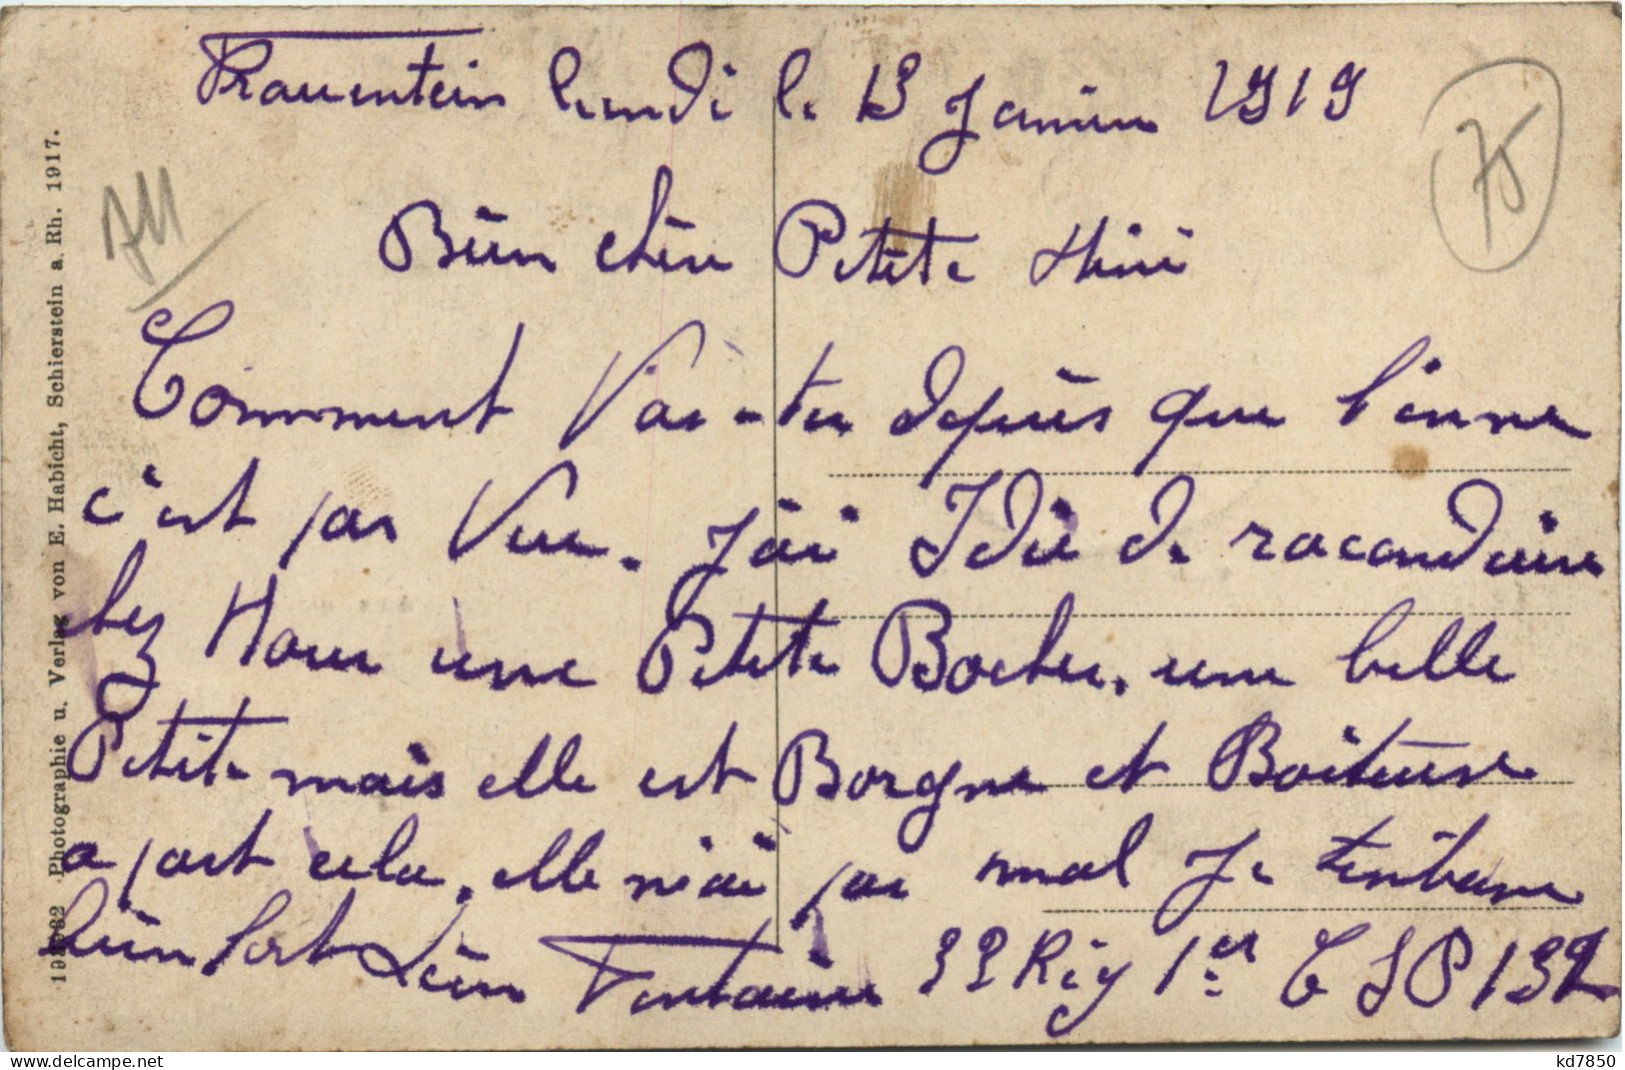 Frauentein lundi le 13 Janvier 1919
75
All
Bien chère Petite Mimi
Comment Vas-tu depuis que l'on ne
c'est pas Vue. J'ai Idée de raconduire
chez Nous une Petite Boche, une belle
Petite mais elle est Borgne et Boiteuse
a part cela, elle n'ai pas mal Je t'embrasse
bien fort Léon Fontaine 32 Rig 1er C S P 132
193632 Photographie u. Verlag von E. Habicht, Schierstein a. Rh. 1917.
www.delcampe.net
kd7850